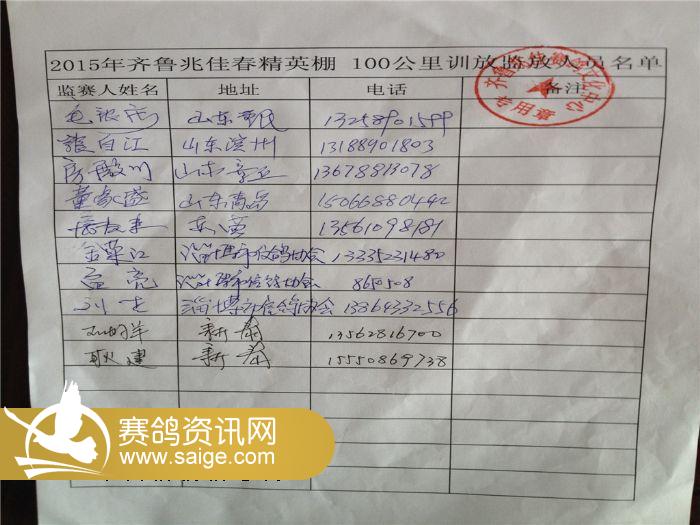 2015年齐鲁兆佳春精英棚 100公里训放监放人员名单
监赛人姓名 地址 电话 备注
山东 13258901599
龍白江 山东滨州 13188901803
房殿川 山东章丘 13678813078
董家盛 山东高昂 15066880442
13561098181
金荣江 淄博市信鸽协会 13335231480
孟亮 淄博市信鸽协会 8650508
刘飞 淄博市信鸽协会 13864332556
新泰 13562816700
耿建 新泰 15550869738
赛鸽资讯网
www.saige.com